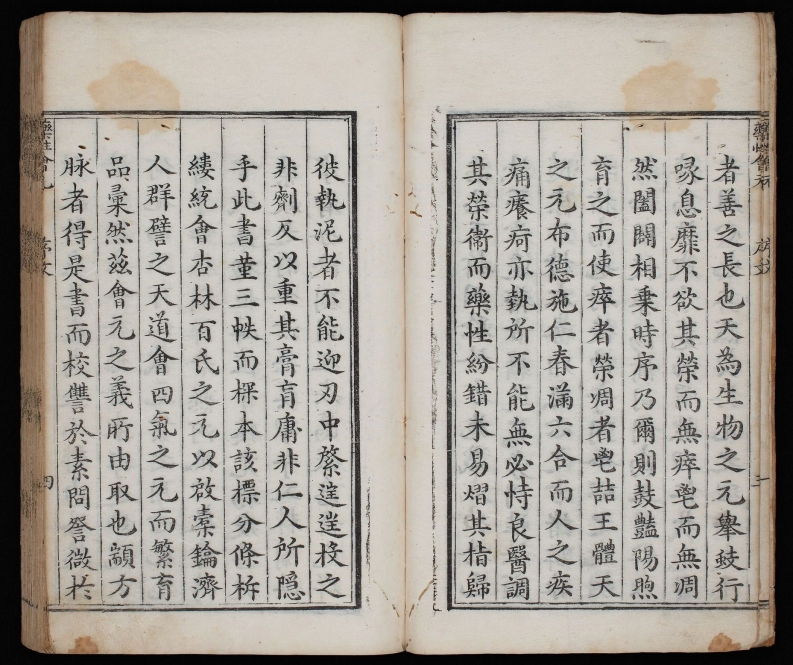 者善之長也天為生物之元舉蚑行
喙息靡不欲其榮而無瘁鬯而無凋
然闔闢相乗時序乃爾則鼓豔陽煦
育之而使瘁者榮凋者鬯喆王體天
之元布德施仁春滿六合而人之疾
痛癢疴亦執所不能無必恃良醫調
其榮衛而藥性紛錯未易熠其㫖歸
彼執泥者不能迎刃中綮逞逞投之
非劑反以重其膏肓庸非仁人所隱
乎此書蕫三帙而標本該標分條析
縷統會杏林百氏之元以啟橐鑰濟
人群譬之天道會四氣之元而繁育
品彙然茲會元之義所由取也顓方
脉者得是書而校讐於素問詧微於
藥性會元
序文
序文
四